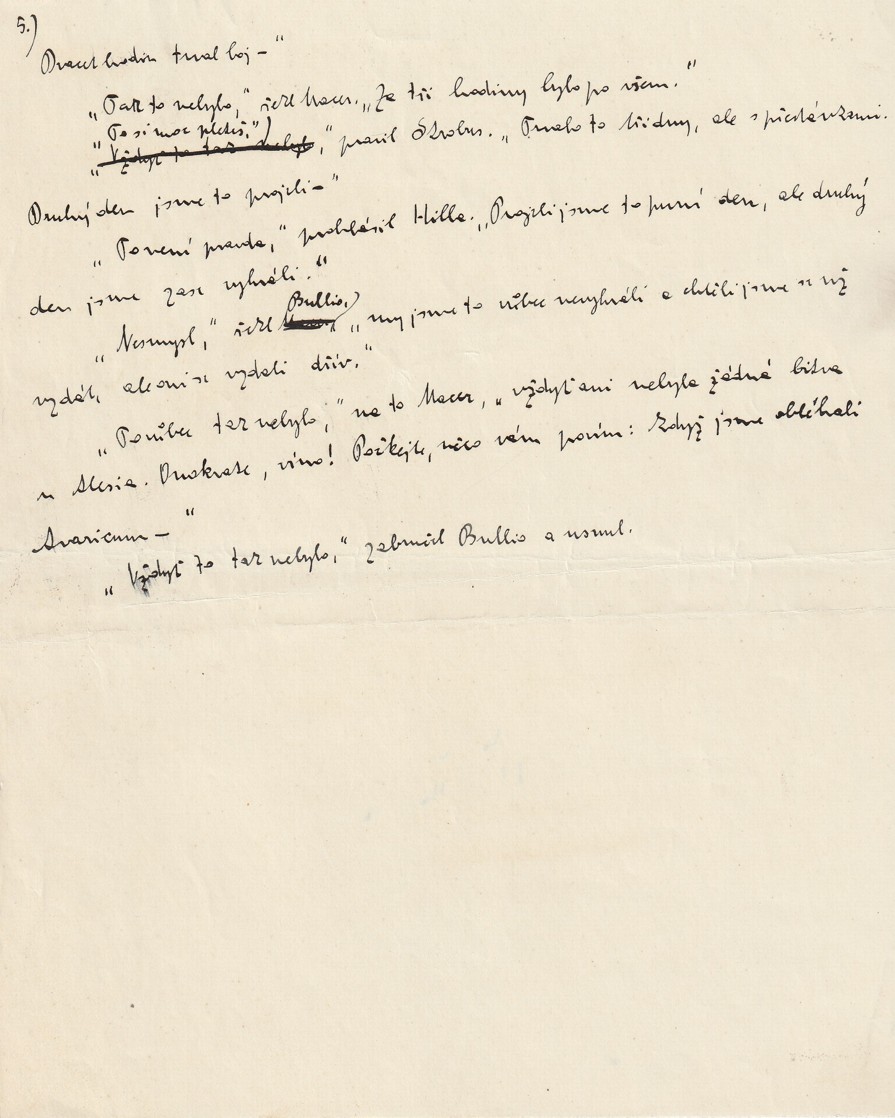 5.)
Dvacet hodin trval boj – "
„Tak to nebylo," řekl Macer. „Za tři hodiny bylo po všem."
„To si moc pleteš,"
„Vždyť to tak nebylo," pravil Strobus. „Trvalo to tři dny, ale s přestávkami.
Druhý den jsme to projeli – "
„To není pravda," prohlásil Hilla. „Projeli jsme to první den, ale druhý
den jsme zase vyhráli."
Bullio,
„Nesmysl," řekl Macer, „my jsme to vůbec nevyhráli a chtěli jsme se už
vzdát, ale oni se vzdali dřív."
„To vůbec tak nebylo," na to Macer, „vždyť ani nebyla žádná bitva
u Alesia. Onokrate, víno! Počkejte, něco vám povím: Když jsme obléhali
Avaricum – "
„Vždyť to tak nebylo," zabručel Bullio a usnul.